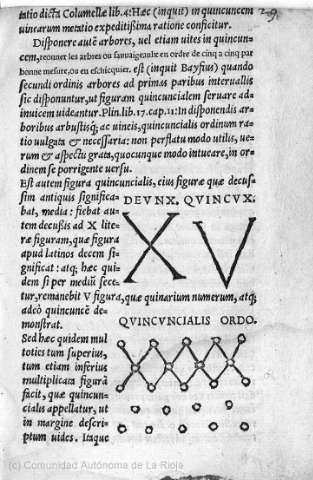 tatio dicta Columellæ lib. 4: Hæc (inquit) in quincuncem
uinearum metatio expeditißima ratione conficitur.
Disponere autē arbores, uel etiam uites in quincun-
cem, renouer les arbres ou sauuaigeaulx en ordre de cinq a cinq par
bonne mesure, ou en eschicquier. est (inquit Bayfius) quando
secundi ordinis arbores ad primas paribus interuallis
sic disponuntur, ut figuram quincuncialem seruare ad-
inuicem uideantur. Plin. lib. 17. cap. 11: In disponendis ar-
boribus arbustisq́; ac uineis, quincuncialis ordinum ra-
tio uulgata & necessaria: non perflatu modo utilis, ue-
rum & aspectu grata, quocunque modo intueare, in or-
dinem se porrigente uersu.
Est autem figura quincuncialis, eius figuræ quæ decus-
sim antiquis significa-
bat, media: fiebat au-
tem decußis ad X lite-
ræ figuram, quæ figura
apud latinos decem si-
gnificat: atq́; hæc qui-
dem si per mediū sece-
tur, remanebit V figura, quæ quinarium numerum, atq́;
adeò quincuncē de-
monstrat.
DEVNX, QVINCVX.
X V
QVINCVNCIALIS ORDO.
Sed hæc quidem mul
toties tum superius,
tum etiam inferius
multiplicata figurā
facit, quæ quincun-
cialis appellatur, ut
in margine descri-
ptum uides. Itaque
(c) Comunidad Autónoma de La Rioja